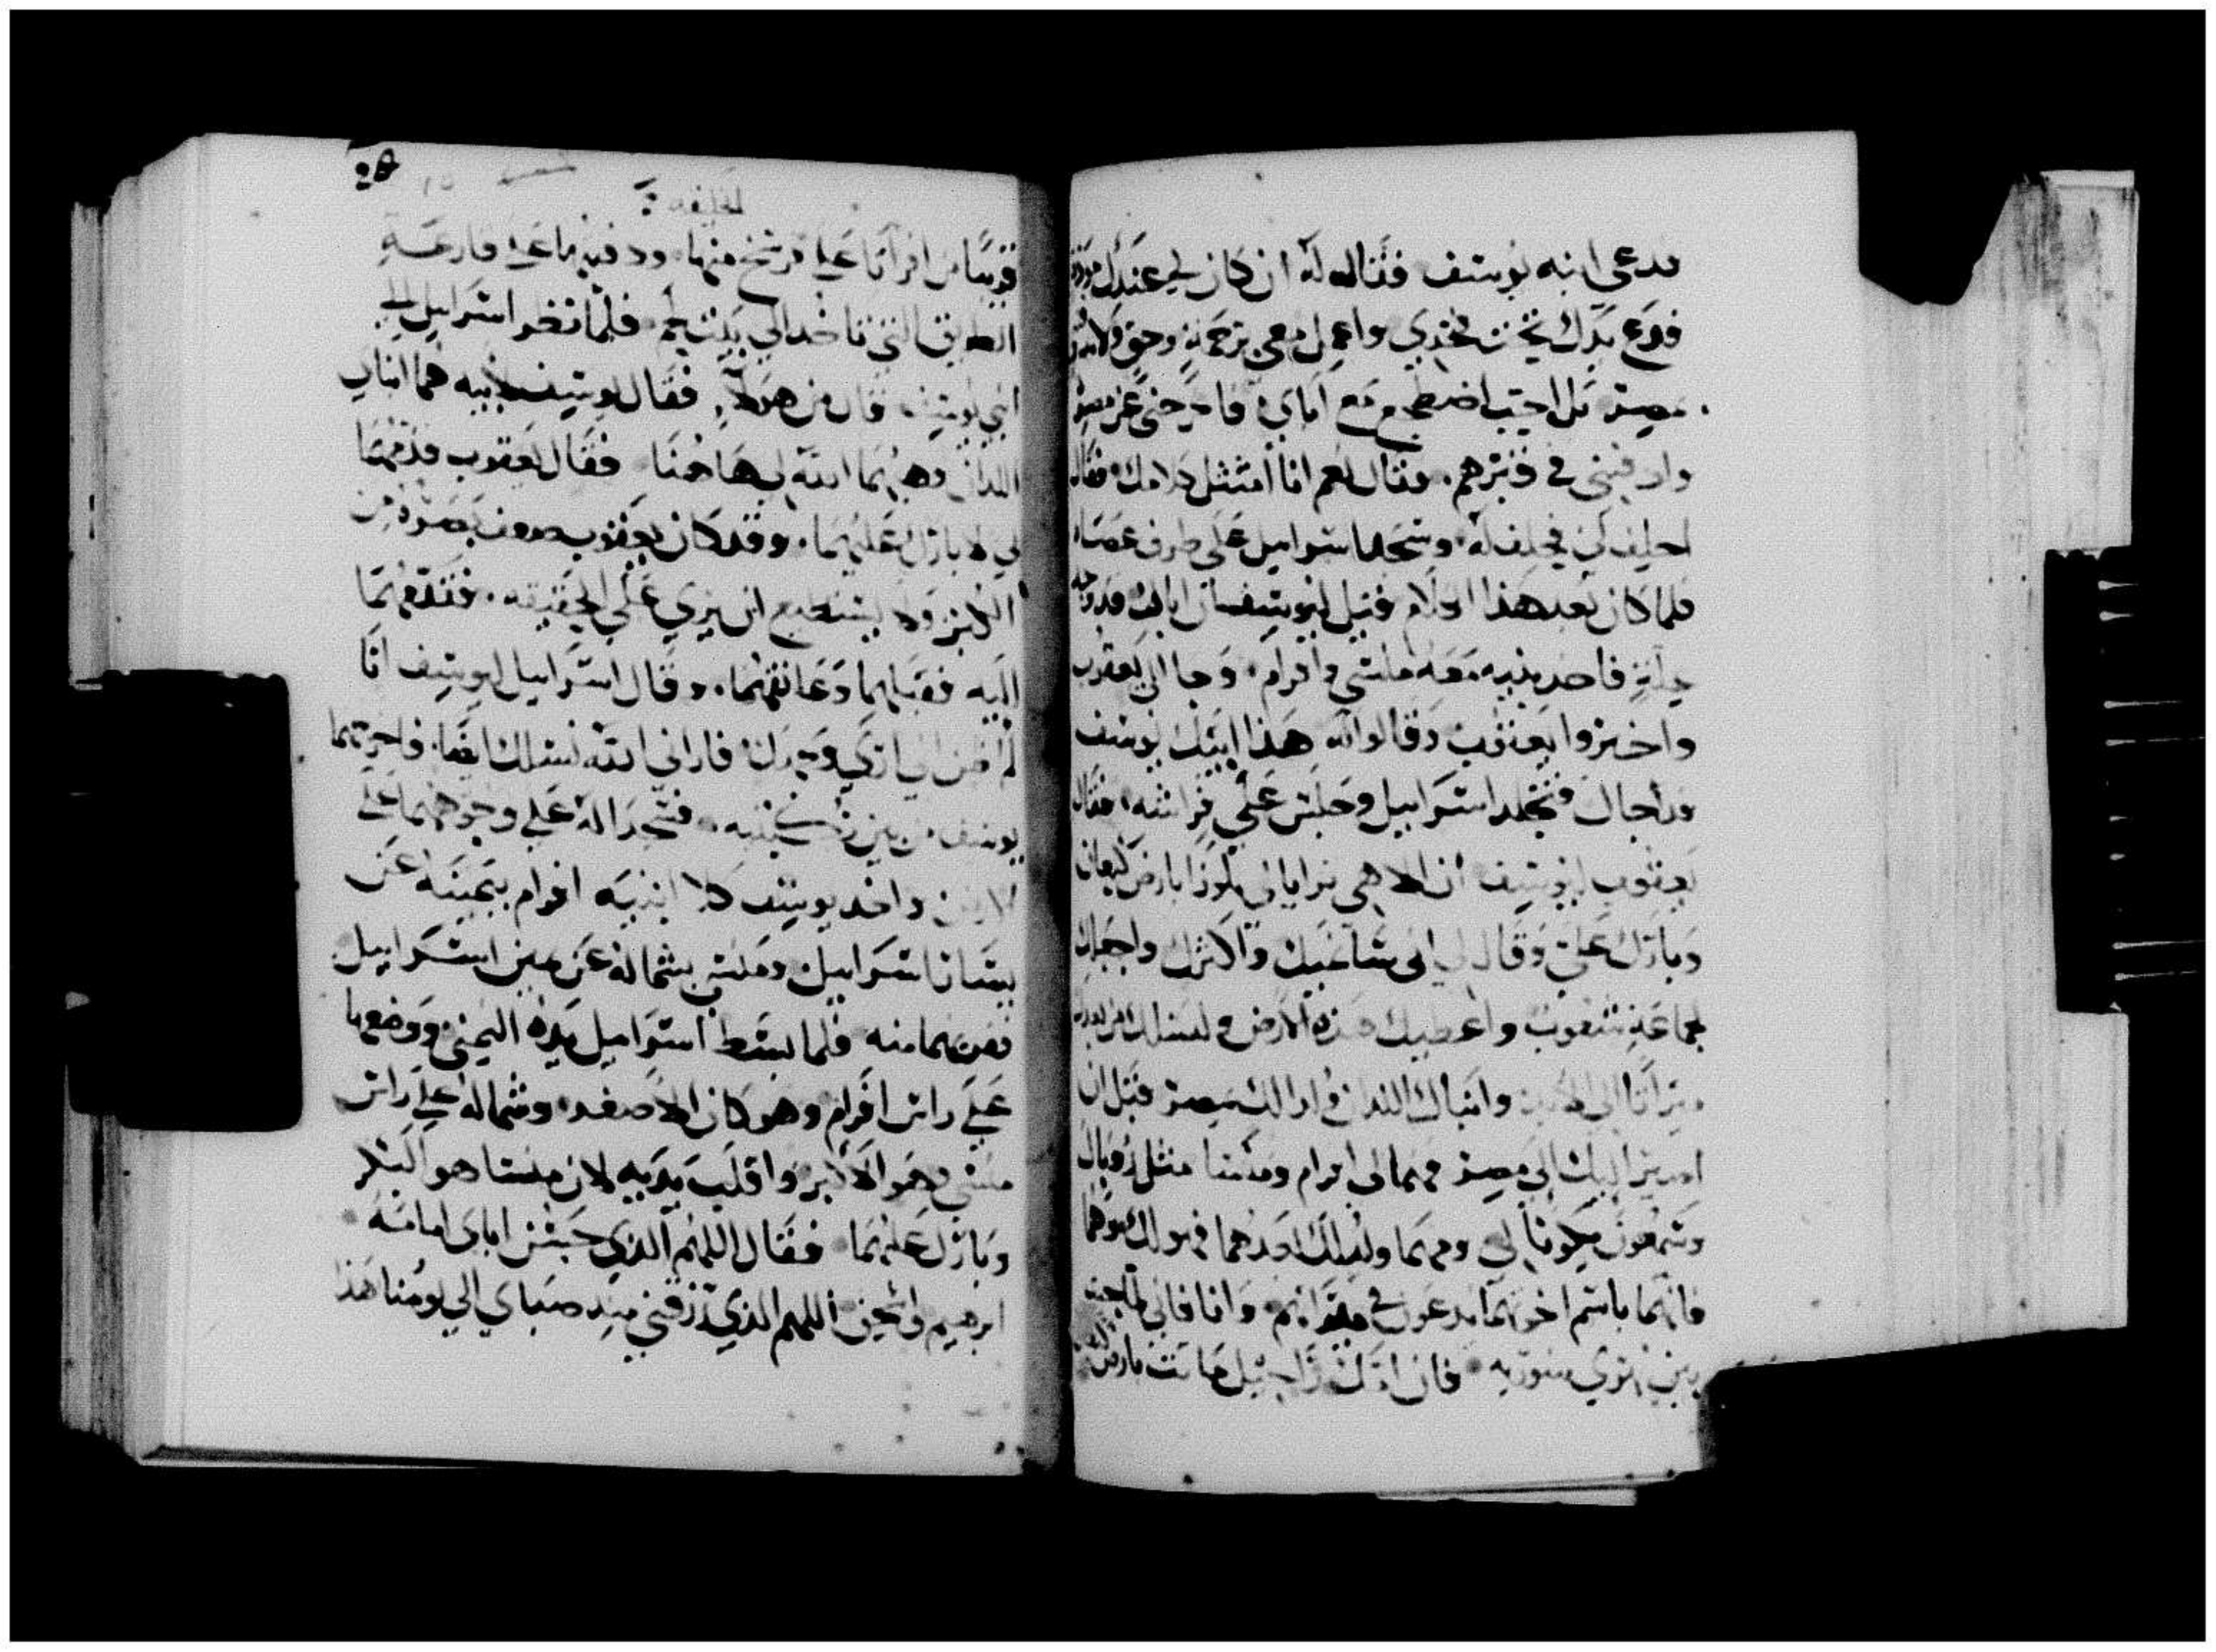 فدعى ابنه يوسف فقال له ان كان لي عندك مودة
فضع يدك تحت فخدي واعمل معي برحمة وحق ولا
بمصر بل احب اضطجع مع اباي فاخرجني عن مصر
وادفنني في قبرهم. فقال نعم انا امتثل كلامك فقال
احلف لي فحلف له وسجد اسراييل على طرف عصاه
فلما كان بعد هذا الكلام قيل ليوسف ان اباك قد
فاخد بنيه معه منسي وافرام وجا الى يعقوب
واخبروا يعقوب وقالوا له هذا ابنك يوسف
قد اجاك فتجلد اسراييل وجلس على فراشه فقال
يعقوب ليوسف ان الاهي ترايا لي بلوزا بارض كنعان
وبارك علي وقال لي اني سانميك واكثرك واجعلك
لجماعة شعوب واعطيك هذه الارض ولنسلك من بعدك
ميراثا الى الابد وابناك اللدان ولدا لك بمصر قبل ان
اصير اليك الى مصر فهما لي افرام ومنسا مثل روبال
وشمعون يكونا لي ومهما ولد لك بعدهما فهو لك
فانهما باسم اخوتهما يدعون في ميراثهم وانا فاني لما جيت
من بين نهري سورية فان امك راحيل ماتت بارض
قريبا من افراتا على فرسخ منها ودفنتها على قارعة
الطريق التي تاخد الى بيت لحم فلما نظر اسراييل الى
ابني يوسف قال من هولاء فقال يوسف لابيه هما ابناي
اللدان وهبهما الله لي هاهنا فقال يعقوب قدمهما
لي لابارك عليهما. وقد كان يعقوب ضعف بصره من
الكبر ولا يستطيع ان يري على الحقيقه. فقدمهما
اليه فقبلهما وعانقهما. وقال اسراييل ليوسف انا
لم اظن اني اري وجهك فاراني الله نسلك ايضا. فاخرجهما
يوسف من بين ركبتيه فسجدا له على وجوههما على
الارض واخد يوسف كلا ابنيه افرام بيمينه عن
يسار اسراييل ومنسي بشماله عن يمين اسراييل
فقربهما منه فلما بسط اسراييل يده اليمنى ووضعها
على راس افرام وهو كان الاصغر وشماله على راس
منسي وهو الاكبر واقلب يديه لان منسا هو البكر
وبارك عليهما فقال اللهم الذي حسن اباي امامه
ابرهيم واسحق اللهم الذي رزقني منذ صباي الى يومنا هذا